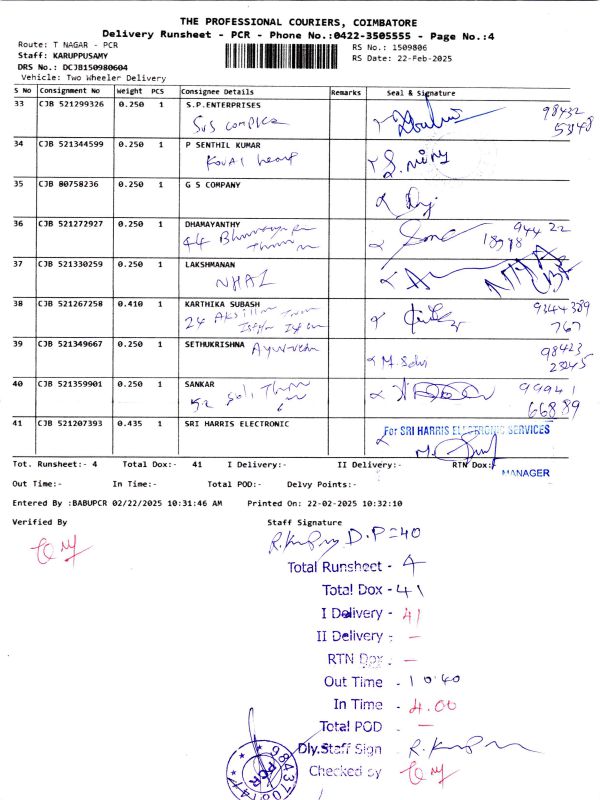 THE PROFESSIONAL COURIERS, COIMBATORE
Delivery Runsheet - PCR - Phone No.:0422-3505555 - Page No.:4
Route: T NAGAR - PCR
RS No.: 1509806
Staff: KARUPPUSAMY
RS Date: 22-Feb-2025
DRS No.: DCJB150980604
Vehicle: Two Wheeler Delivery
S No Consignment No Weight PCS Consignee Details Remarks Seal & Signature
33 CJB 521299326 0.250 1 S.P.ENTERPRISES
SVS complex
98432
53148
34 CJB 521344599 0.250 1 P SENTHIL KUMAR
Kovai heart
35 CJB 80758236 0.250 1 G S COMPANY
36 CJB 521272927 0.250 1 DHAMAYANTHY
944 22
18998
44
37 CJB 521330259 0.250 1 LAKSHMANAN
NHAI
38 CJB 521267258 0.410 1 KARTHIKA SUBASH
9344389
767
24
39 CJB 521349667 0.250 1 SETHUKRISHNA
98423
23245
40 CJB 521359901 0.250 1 SANKAR
99941
66889
52
41 CJB 521207393 0.435 1 SRI HARRIS ELECTRONIC
For SRI HARRIS ELECTRONIC SERVICES
MANAGER
Tot. Runsheet:- 4 Total Dox:- 41 I Delivery:- II Delivery:- RTN Dox:-
Out Time:- In Time:- Total POD:- Delvy Points:-
Entered By :BABUPCR 02/22/2025 10:31:46 AM Printed On: 22-02-2025 10:32:10
Verified By Staff Signature
D.P=40
Total Runsheet - 4
Total Dox - 41
I Delivery - 41
II Delivery : -
RTN Dox : -
Out Time - 10.40
In Time - 4.00
Total POD -
Dly.Staff Sign
Checked by
PCR